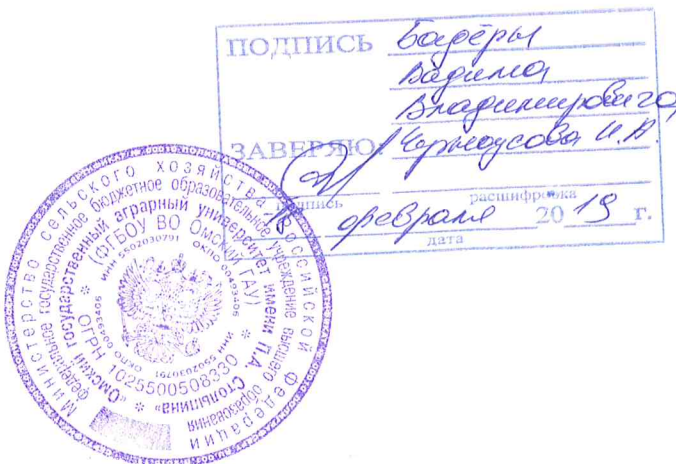 ПОДПИСЬ Бадёры
Вадима
Владимировича
ЗАВЕРЯЮ: Черноусова И.А.
подпись расшифровка
18 февраля 2019 г.
дата
Министерство сельского хозяйства Российской Федерации
федеральное государственное бюджетное образовательное учреждение высшего образования
«Омский государственный аграрный университет имени П.А. Столыпина»
(ФГБОУ ВО Омский ГАУ)
ОГРН 1025500508330
ОКПО 00493406 ИНН 5502030791
ОКПО 00493406 ИНН 5502030791